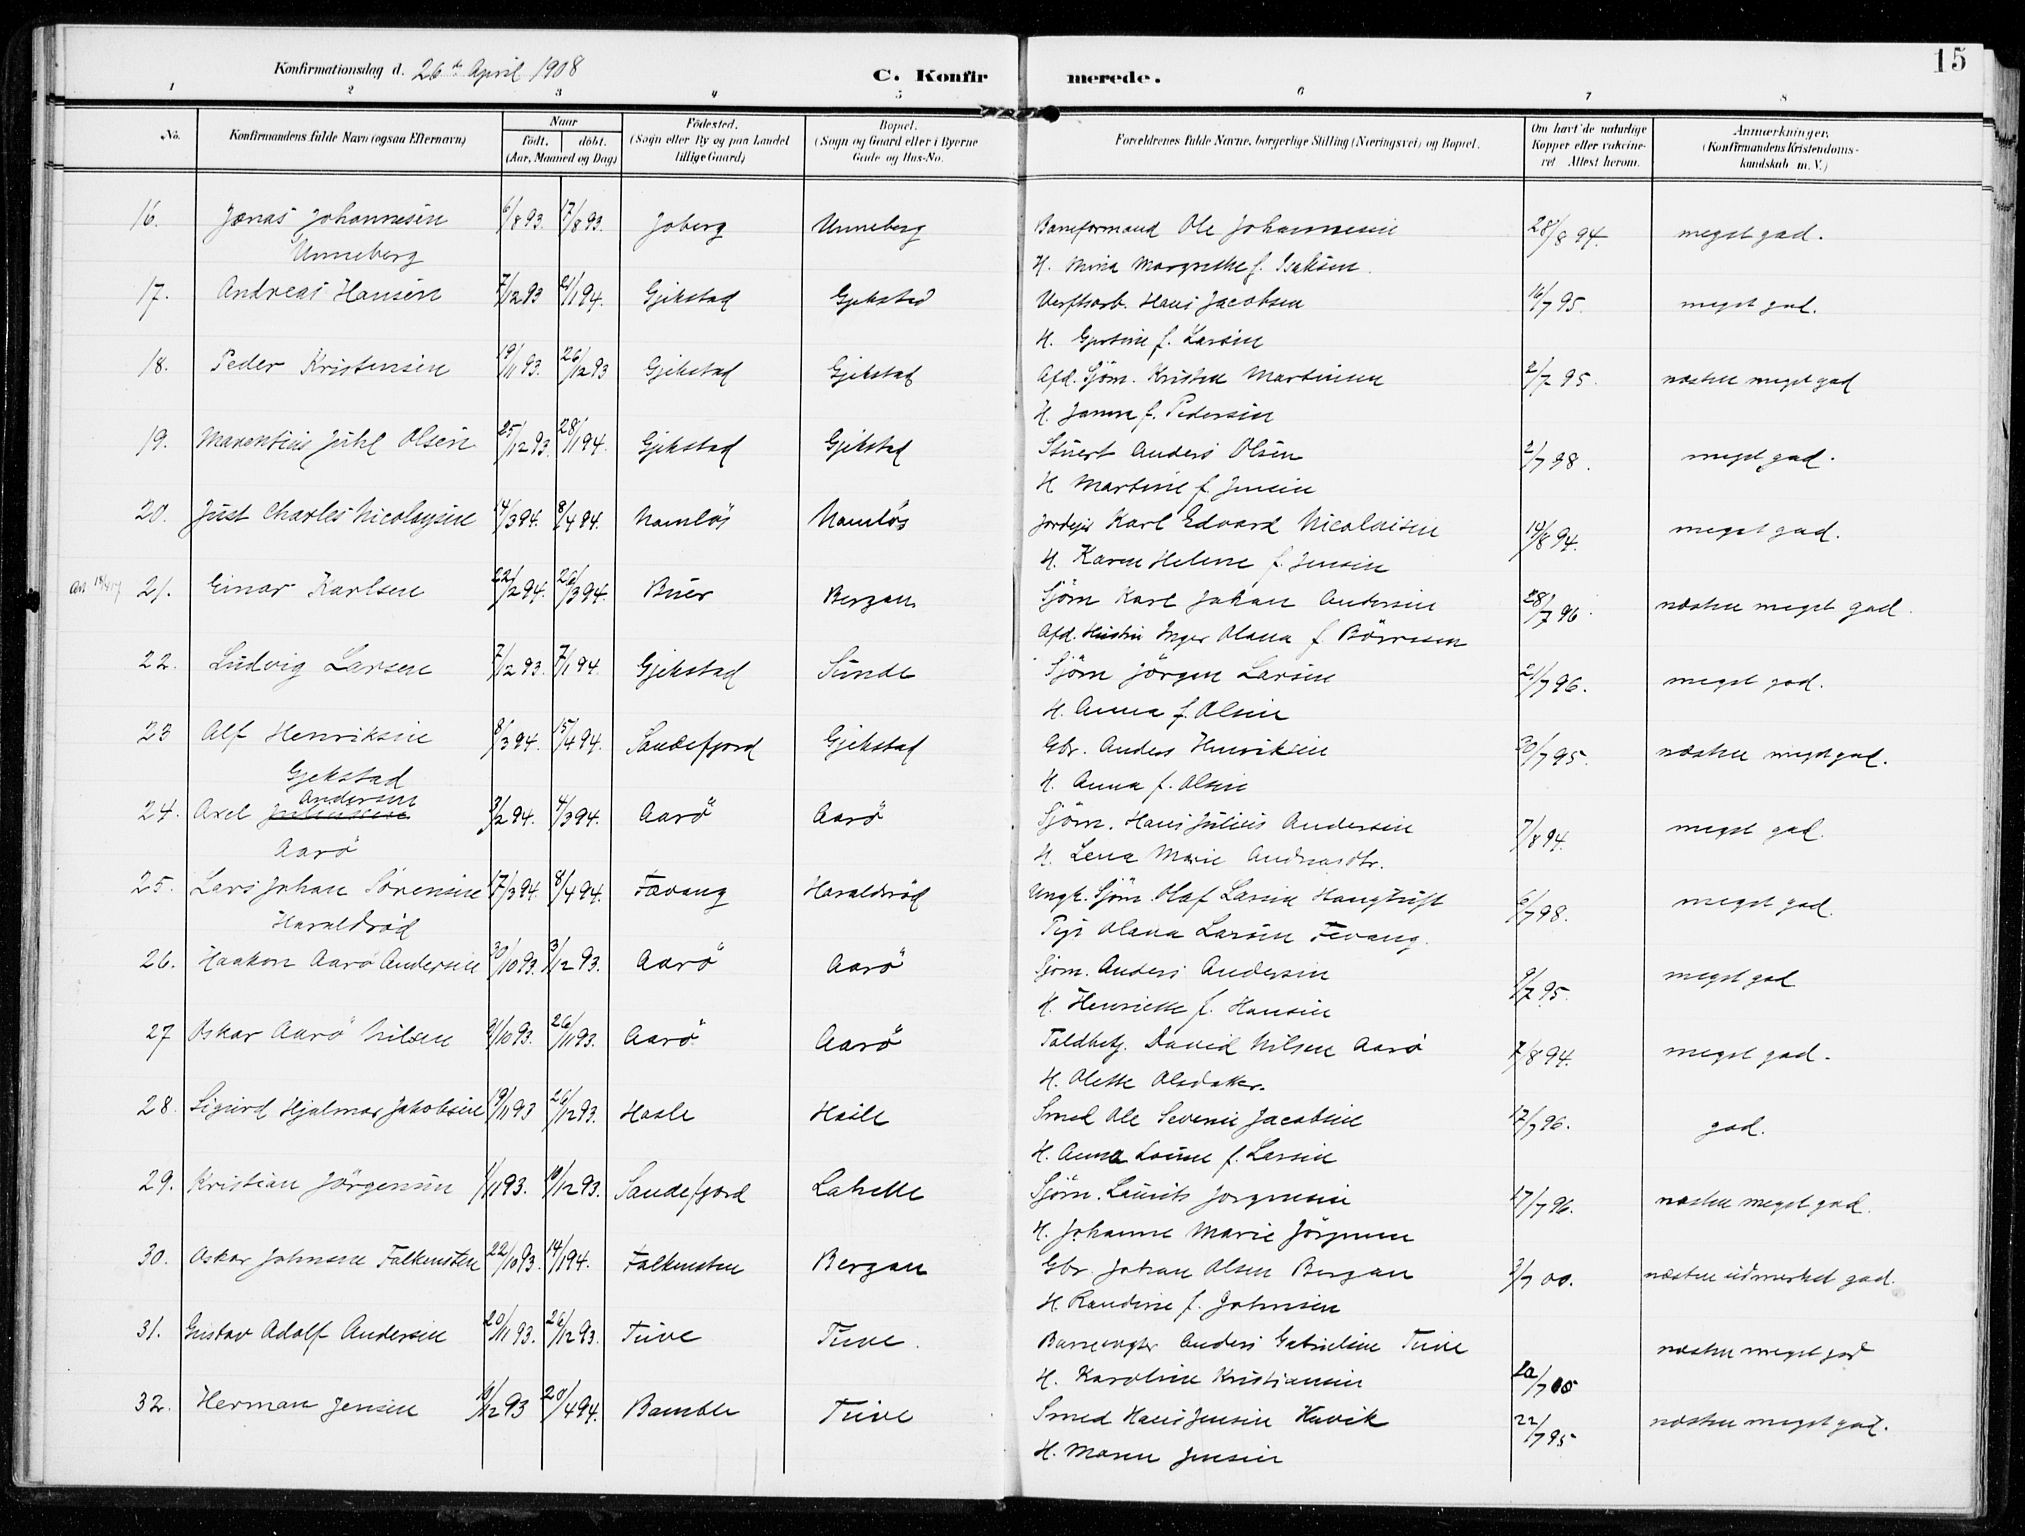 15
Konfirmationsdag d. 26de April 1908 C. Konfirmerede.
1 2 3 4 5 6 7 8
No. Konfirmandens fulde Navn (ogsaa Efternavn) Naar født, døbt. (Aar, Maaned og Dag) Fødested. (Sogn eller By og paa Landet tillige Gaard) Bopæl. (Sogn og Gaard eller i Byerne Gade og Hus-No. Forældrenes fulde Navne, borgerlige Stilling (Næringsvei) og Bopæl. Om havt de naturlige Kopper eller vakcineret Attest herom. Anmærkninger. (Konfirmandens Kristendomskundskab m. V.)
16. Jonas Johannesen 6/8 93. 17/8 93. Joberg Unneberg Baneformand Ole Johannesen 28/8 94. meget god.
Unneberg H. Mina Margrethe f. Isaksen.
17. Andreas Hansen 7/12 93 21/1 94. Gjekstad Gjekstad Verftsarb. Hans Jacobsen 16/7 95. meget god.
H. Gustine f. Larsen
18. Peder Kristensen 19/11 93. 26/12 93 Gjekstad Gjekstad Afd. Sjøm. Kristen Martinsen 2/7 95. næsten meget god
H. Janna f. Pedersen
19. Marentius Juhl Olsen 25/12 93. 28/1 94. Gjekstad Gjekstad Stuert Anders Olsen 2/7 98. meget god.
H Martine f. Jensen
20. Just Charles Nicolaysen 14/3 94. 8/4 94. Namløs Namløs Jordejer Karl Edvard Nicolaisen 19/8 94. meget god.
H. Karen Helene f. Jensen
21. Einar Karlsen 22/2 94. 26/3 94. Buer Bergan Sjøm Karl Johan Andersen 28/7 96. næsten meget god.
Afd. Hustru Inger Olava f. Børresen
22. Ludvig Larsen 7/12 93. 7/1 94. Gjekstad Sunde Sjøm Jørgen Larsen 21/7 96. meget god.
H. Anna f. Olsen
23 Alf Henriksen 8/3 94. 15/4 94. Sandefjord Gjekstad Gbr. Anders Henriksen 30/7 95. næsten meget god.
Gjekstad H. Anna f. Olsen
24. Axel Andersen 3/2 94. 4/3 94. Aarø Aarø Sjøm. Hans Julius Andersen 7/8 94. meget god.
Aarø H. Lena Marie Andreasdtr.
25. Lars Johan Sørensen 17/3 94. 8/4 94. Fevang Haraldrød Ungk. Sjøm. Olaf Larsen Haugtuft 6/7 98. meget god.
Haraldrød Pige Olava Larsen Fevang.
26. Haakon Aarø Andersen 30/10 93. 3/12 93. Aarø Aarø Sjøm. Anders Andersen 9/7 95. meget god
H. Henriette f. Hansen
27 Oskar Aarø Nilsen 9/10 93. 26/11 93. Aarø Aarø Toldbetj. David Nilsen Aarø 7/8 94. meget god.
H. Olette Olsdatter.
28. Sigurd Hjalmar Jakobsen 19/11 93 26/12 93. Hasle Hasle Smed Ole Severin Jacobsen 17/7 96. god.
H. Anna Louise f. Larsen
29. Kristian Jørgensen 1/11 93. 10/12 93. Sandefjord Lahelle Sjøm. Laurits Jørgensen 17/7 96. næsten meget god.
H. Johanne Marie Jørgensen
30. Oskar Johnsen Falkensten 22/10 93. 14/1 94. Falkensten Bergan Gbr. Johan Olsen Bergan 3/7 00. næsten udmerket god.
H. Randine f. Johnsen
31. Gustav Adolf Andersen 20/11 93. 26/12 93. Tuve Tuve. Banevogter Anders Gabrielsen Tuve næsten meget god
H. Karoline Kristiansen 20/7 05
32. Herman Jensen 10/12 93 20/4 94. Bamble Tuve Smed Hans Jensen Havik 22/7 95 næsten meget god.
H. Maren Jensen